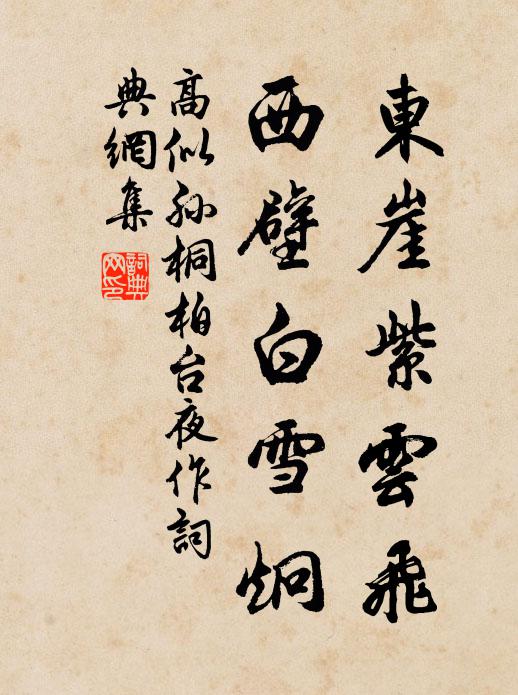 東崖紫雲飛
西壁白雪炯
高似孫桐柏台夜作詞
典網集
詞典網印